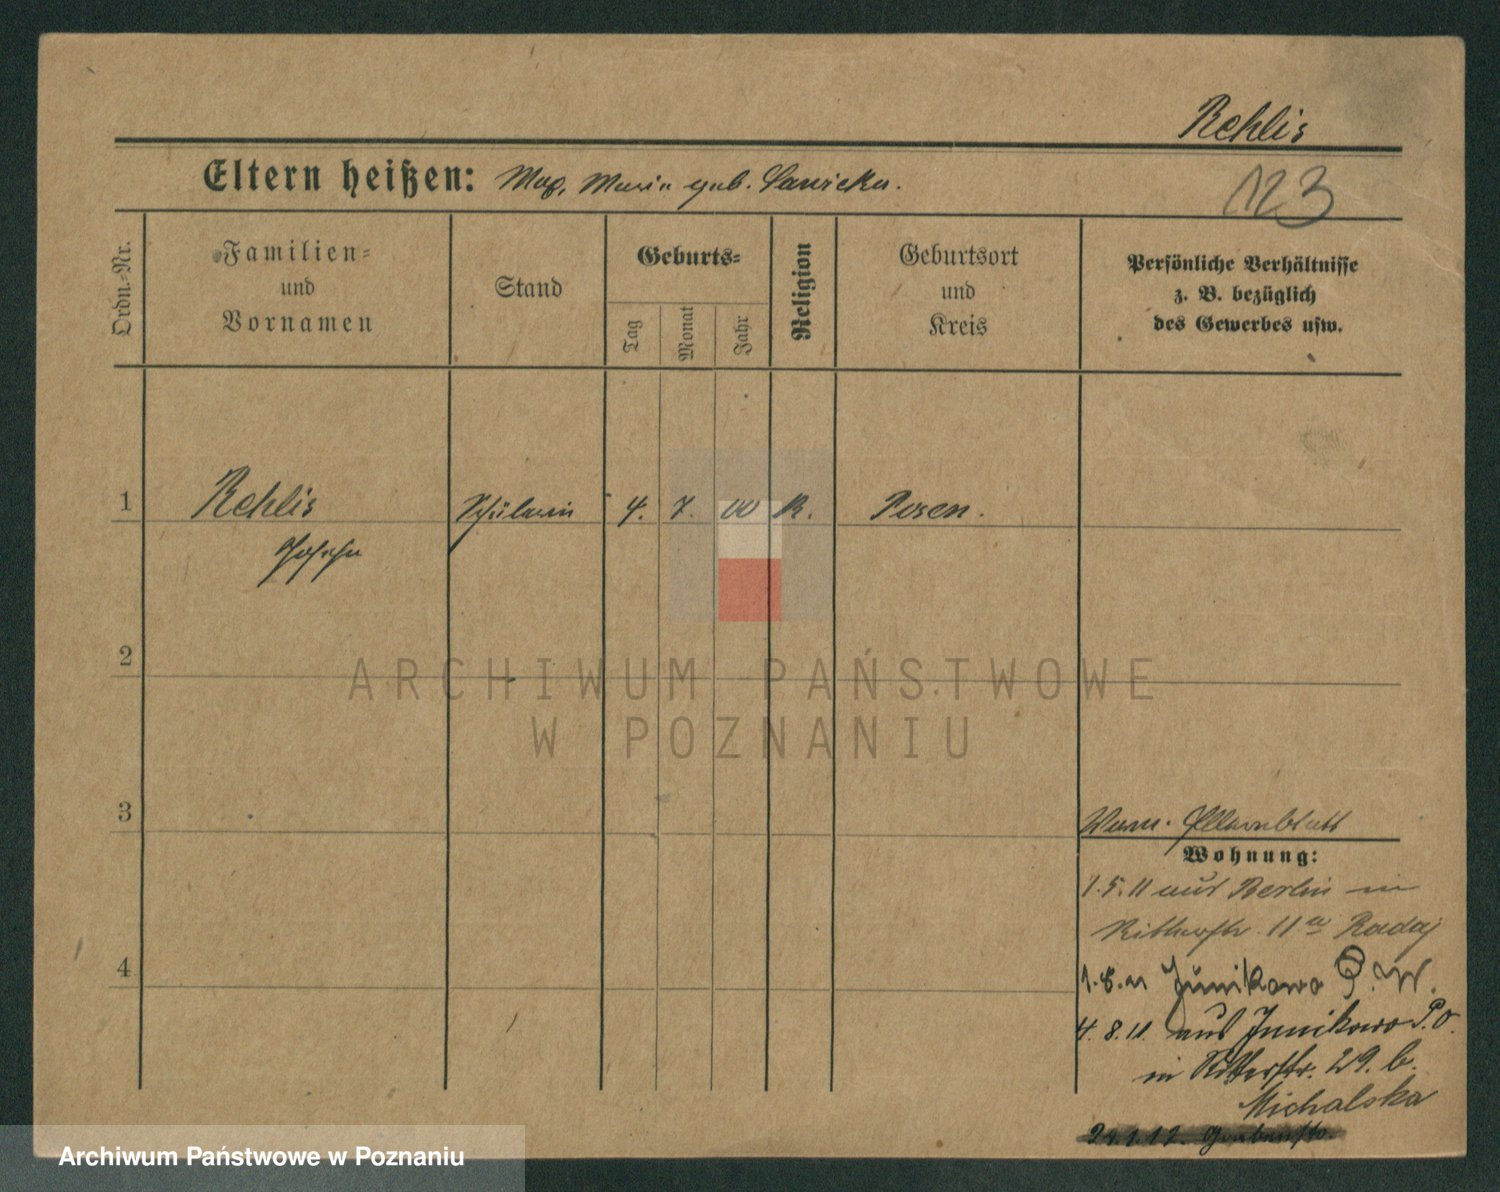 Rehlis
Eltern heißen: Max, Maria geb. Sawicka.
123
Ordn.-Nr.
Familien-
und
Vornamen
Stand
Geburts-
Tag
Monat
Jahr
Religion
Geburtsort
und
Kreis
Persönliche Verhältnisse
z. B. bezüglich
des Gewerbes usw.
1 Rehlis Schülerin 4. 7. 00 K. Posen.
2
3
4
Wohnung:
1.5.11 aus Berlin in
Ritterstr. 11a Radaj
Junikowo P. W.
4. 8. 11. aus Junikowo P.O.
in Ritterstr. 29. b.
Michalska
ARCHIWUM PAŃSTWOWE
W POZNANIU
Archiwum Państwowe w Poznaniu